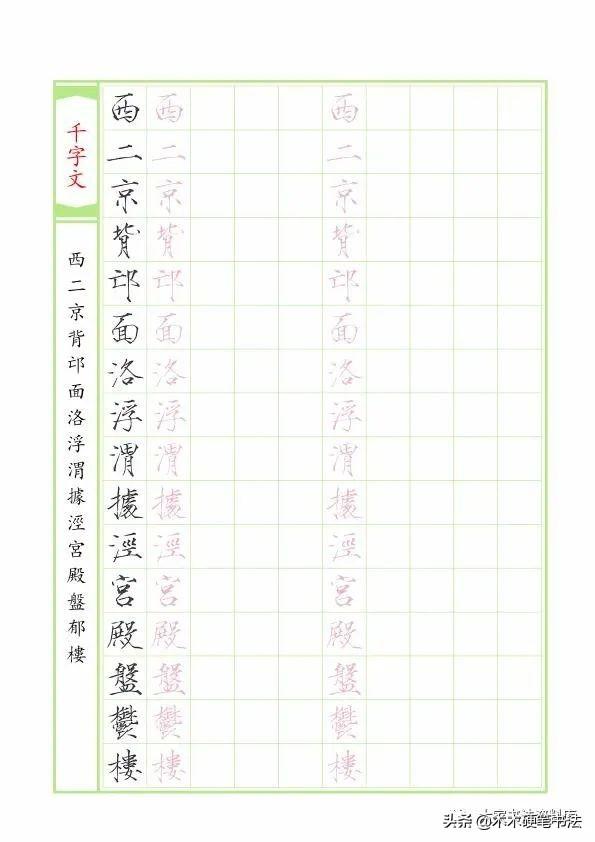 千字文
西二京背邙面洛浮渭據涇宮殿盤郁樓
西二京背邙面洛浮渭據涇宮殿盤鬱樓
西二京背邙面洛浮渭據涇宮殿盤鬱樓
西二京背邙面洛浮渭據涇宮殿盤鬱樓
头条 @木木硬笔书法